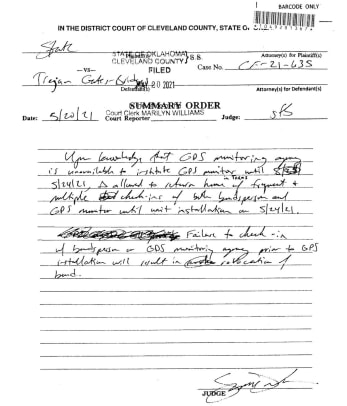 BARCODE ONLY
IN THE DISTRICT COURT OF CLEVELAND COUNTY, STATE O
State
STATE OF OKLAHOMA
CLEVELAND COUNTY S.S.
FILED
Attorney(s) for Plaintiff(s)
-vs-
Case No. CF-21-635
MAY 20 2021
Defendant(s)
Attorney(s) for Defendant(s)
SUMMARY ORDER
Court Clerk MARILYN WILLIAMS
Date: 5/20/21 Court Reporter Judge:
Upon knowledge that GPS monitoring agency
is unavailable to institute GPS monitor until
5/24/21, Δ allowed to return home in Texas w/ frequent &
multiple check-ins w/ both bondsperson and
GPS monitor until unit installation on 5/24/21.
Failure to check-in
w/ bondsperson or GPS monitoring agency prior to GPS
installation will result in revocation of
bond.
JUDGE